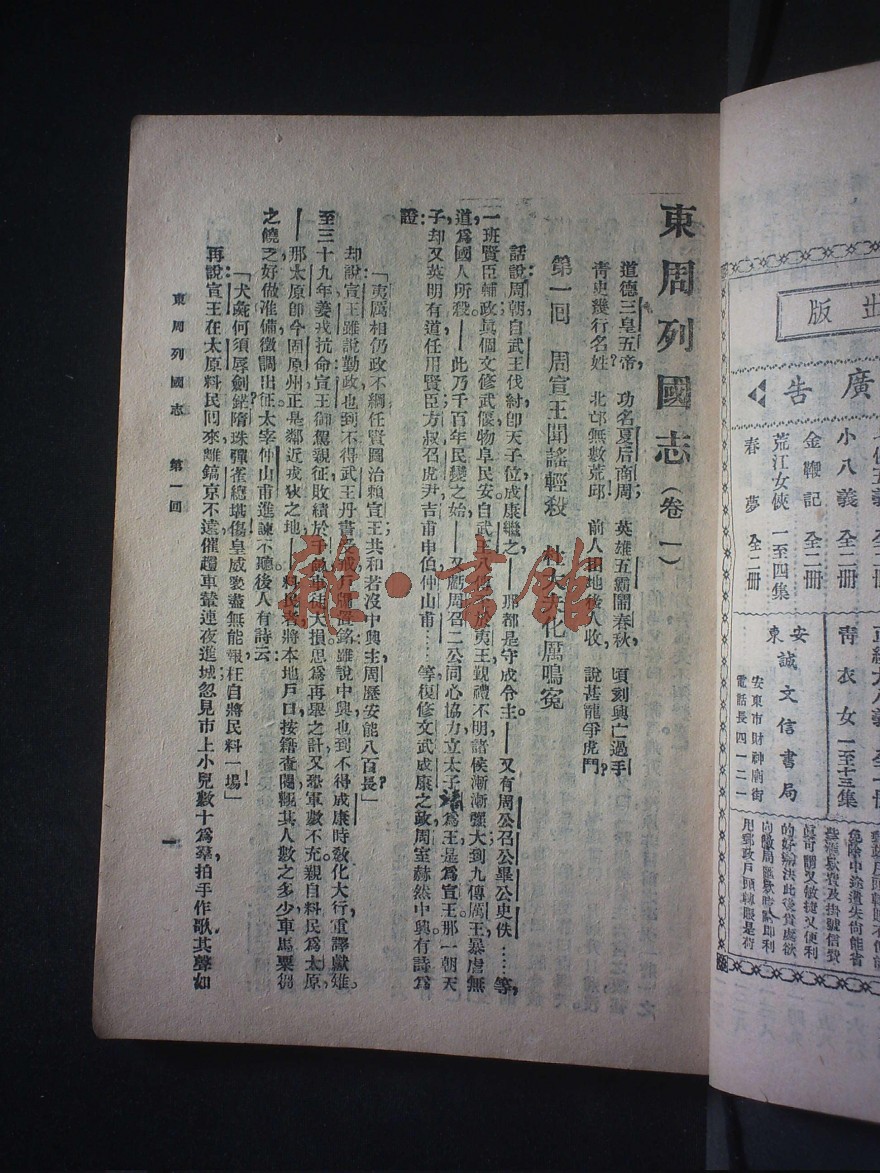 東周列國志（卷一）
道德三皇五帝，　功名夏后商周；　英雄五霸鬧春秋，　頃刻興亡過手！
靑史幾行名姓？　北邙無數荒邱；　前人田地後人收，　說甚龍爭虎鬥？
第一回　周宣王聞謠輕殺　杜大夫化厲鳴冤
話說周朝，自武王伐紂，卽天子位，成康繼之——那都是守成令主。——又有周公召公畢公史佚……等，
一班賢臣輔政，眞個文修武偃，物阜民安。自武王八傳至於夷王，覲禮不明，諸侯漸漸彊大。到九傳厲王，暴虐無
道，爲國人所殺。——此乃千百年民變之始——又虧周召二公同心協力，立太子靖爲王，是爲宣王。那一朝天
子，却又英明有道，任用賢臣方叔召虎尹吉甫申伯仲山甫……等，復修文武成康之政，周室赫然中興。有詩爲
證：
「夷厲相仍政不綱，任賢圖治賴宣王；共和若沒中興主，周歷安能八百長？」
却說宣王雖說勤政，也到不得武王丹書受戒，戶牖置銘；雖說中興，也到不得成康時敎化大行，重譯獻雉。
至三十九年，姜戎抗命，宣王御駕親征，敗績於千畝，車徒大損，思爲再舉之計，又恐軍數不充，親自料民爲太原。
——那太原卽今固原州，正是鄰近戎狄之地——料民者，將本地戶口，按籍查閱，觀其人數之多少，車馬粟芻
之饒乏，好做准備，徵調出征。太宰仲山甫進諫不聽。後人有詩云：
「犬彘何須辱劍鋩？隋珠彈雀總堪傷！皇威褻盡無能報，枉自將民料一場！」
再說宣王在太原料民囘來，離鎬京不遠，催趲車輦，連夜進城。忽見市上小兒數十爲羣，拍手作歌，其聲如
東周列國志　第一回
一
出版
廣告
小八義　全二冊
金鞭記　全二冊
荒江女俠　一至四集
春夢　全二冊
靑衣女　一至十三集
安東
誠文信書局
安東市財神廟街
電話長四一二一
雜·書館